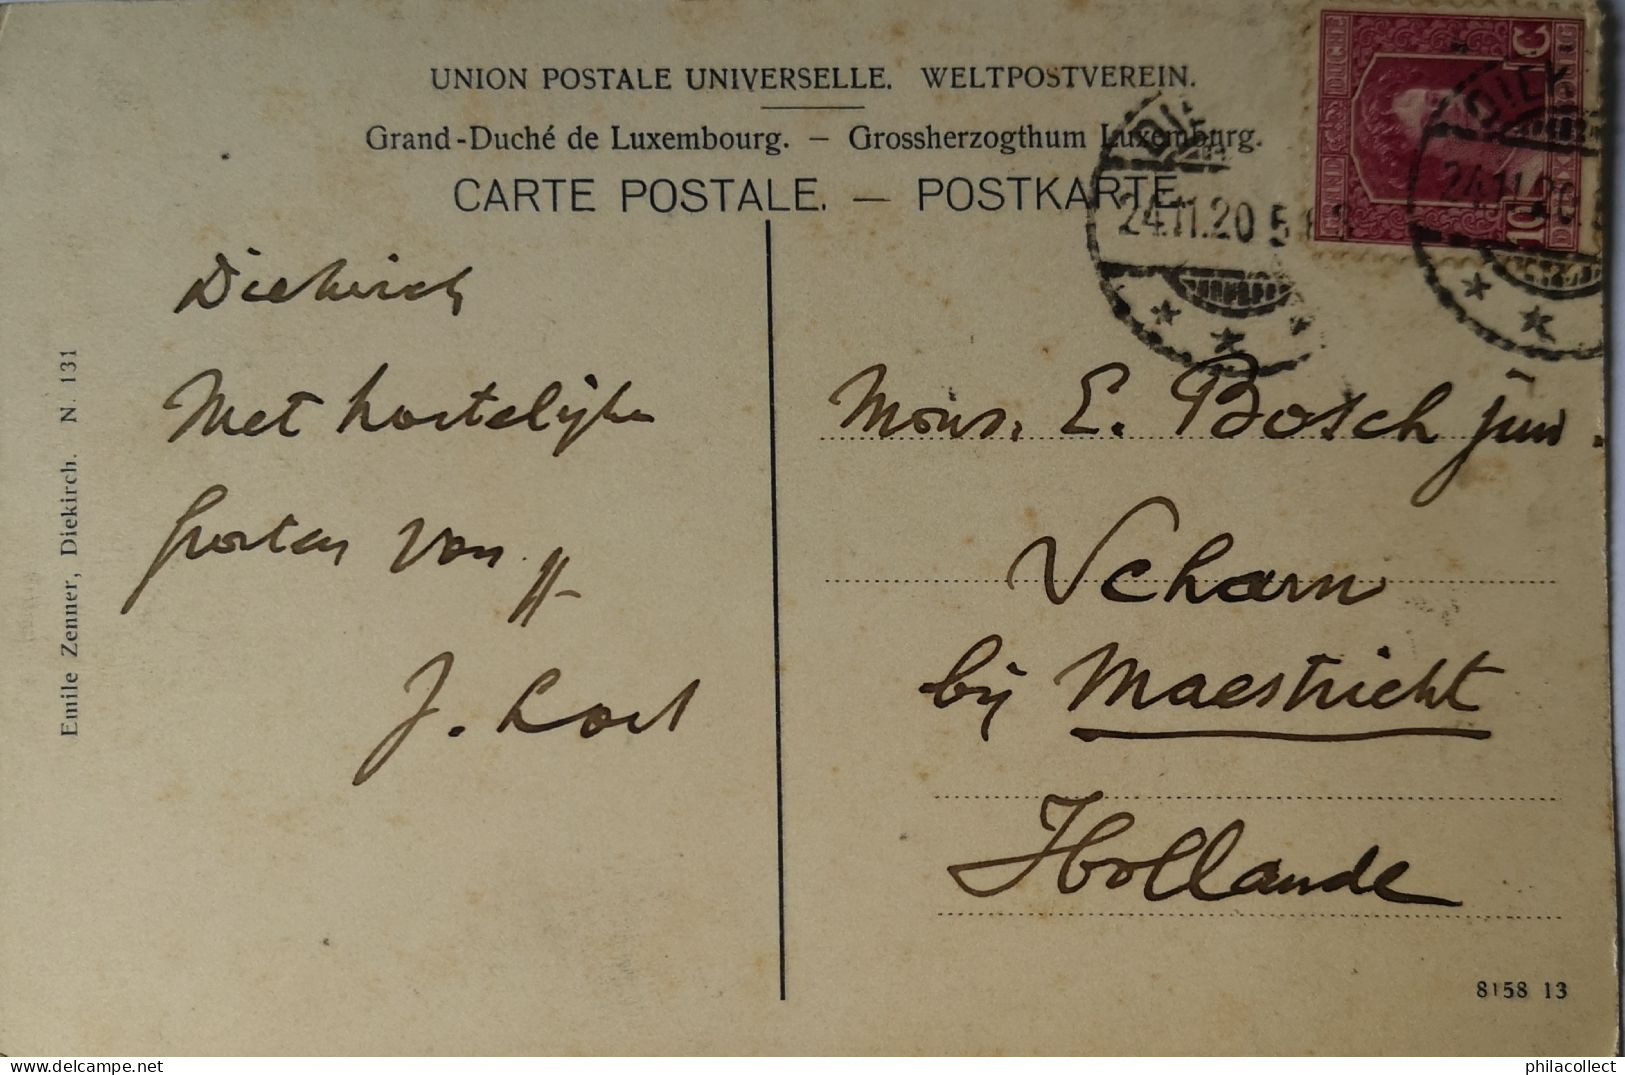 UNION POSTALE UNIVERSELLE. WELTPOSTVEREIN.
Grand-Duché de Luxembourg. – Grossherzogthum Luxemburg.
CARTE POSTALE. — POSTKARTE.
10 C
24.11.20 5
24.11.20
Diekirch
Met hartelijke
groeten van
J.
Mons. E. Bosch jun.
Scharn
bij Maestricht
Hollande
Emile Zenner, Diekirch. N. 131
8158 13
philacollect